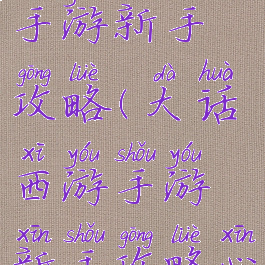 手游新手
gōng lüè dà huà
攻略(大话
xī yóu shǒu yóu
西游手游
xīn shǒu gōng lüè xīn
新手攻略